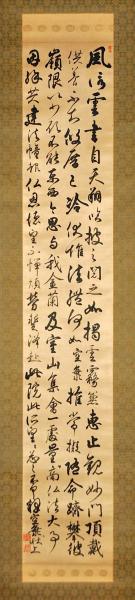 風信雲書自天翔臨披之閲之如掲雲霧兼恵止観妙門頂戴
供養不知攸厝已冷伏惟法體何如空海推常擬随命躋攀彼
嶺限以少願不能東西今思与我金蘭及室山集會一處量商仏法大事
因縁共建法幢報仏恩徳望不憚煩勞蹔降赴此院此所望々忩々不具釋空海状上